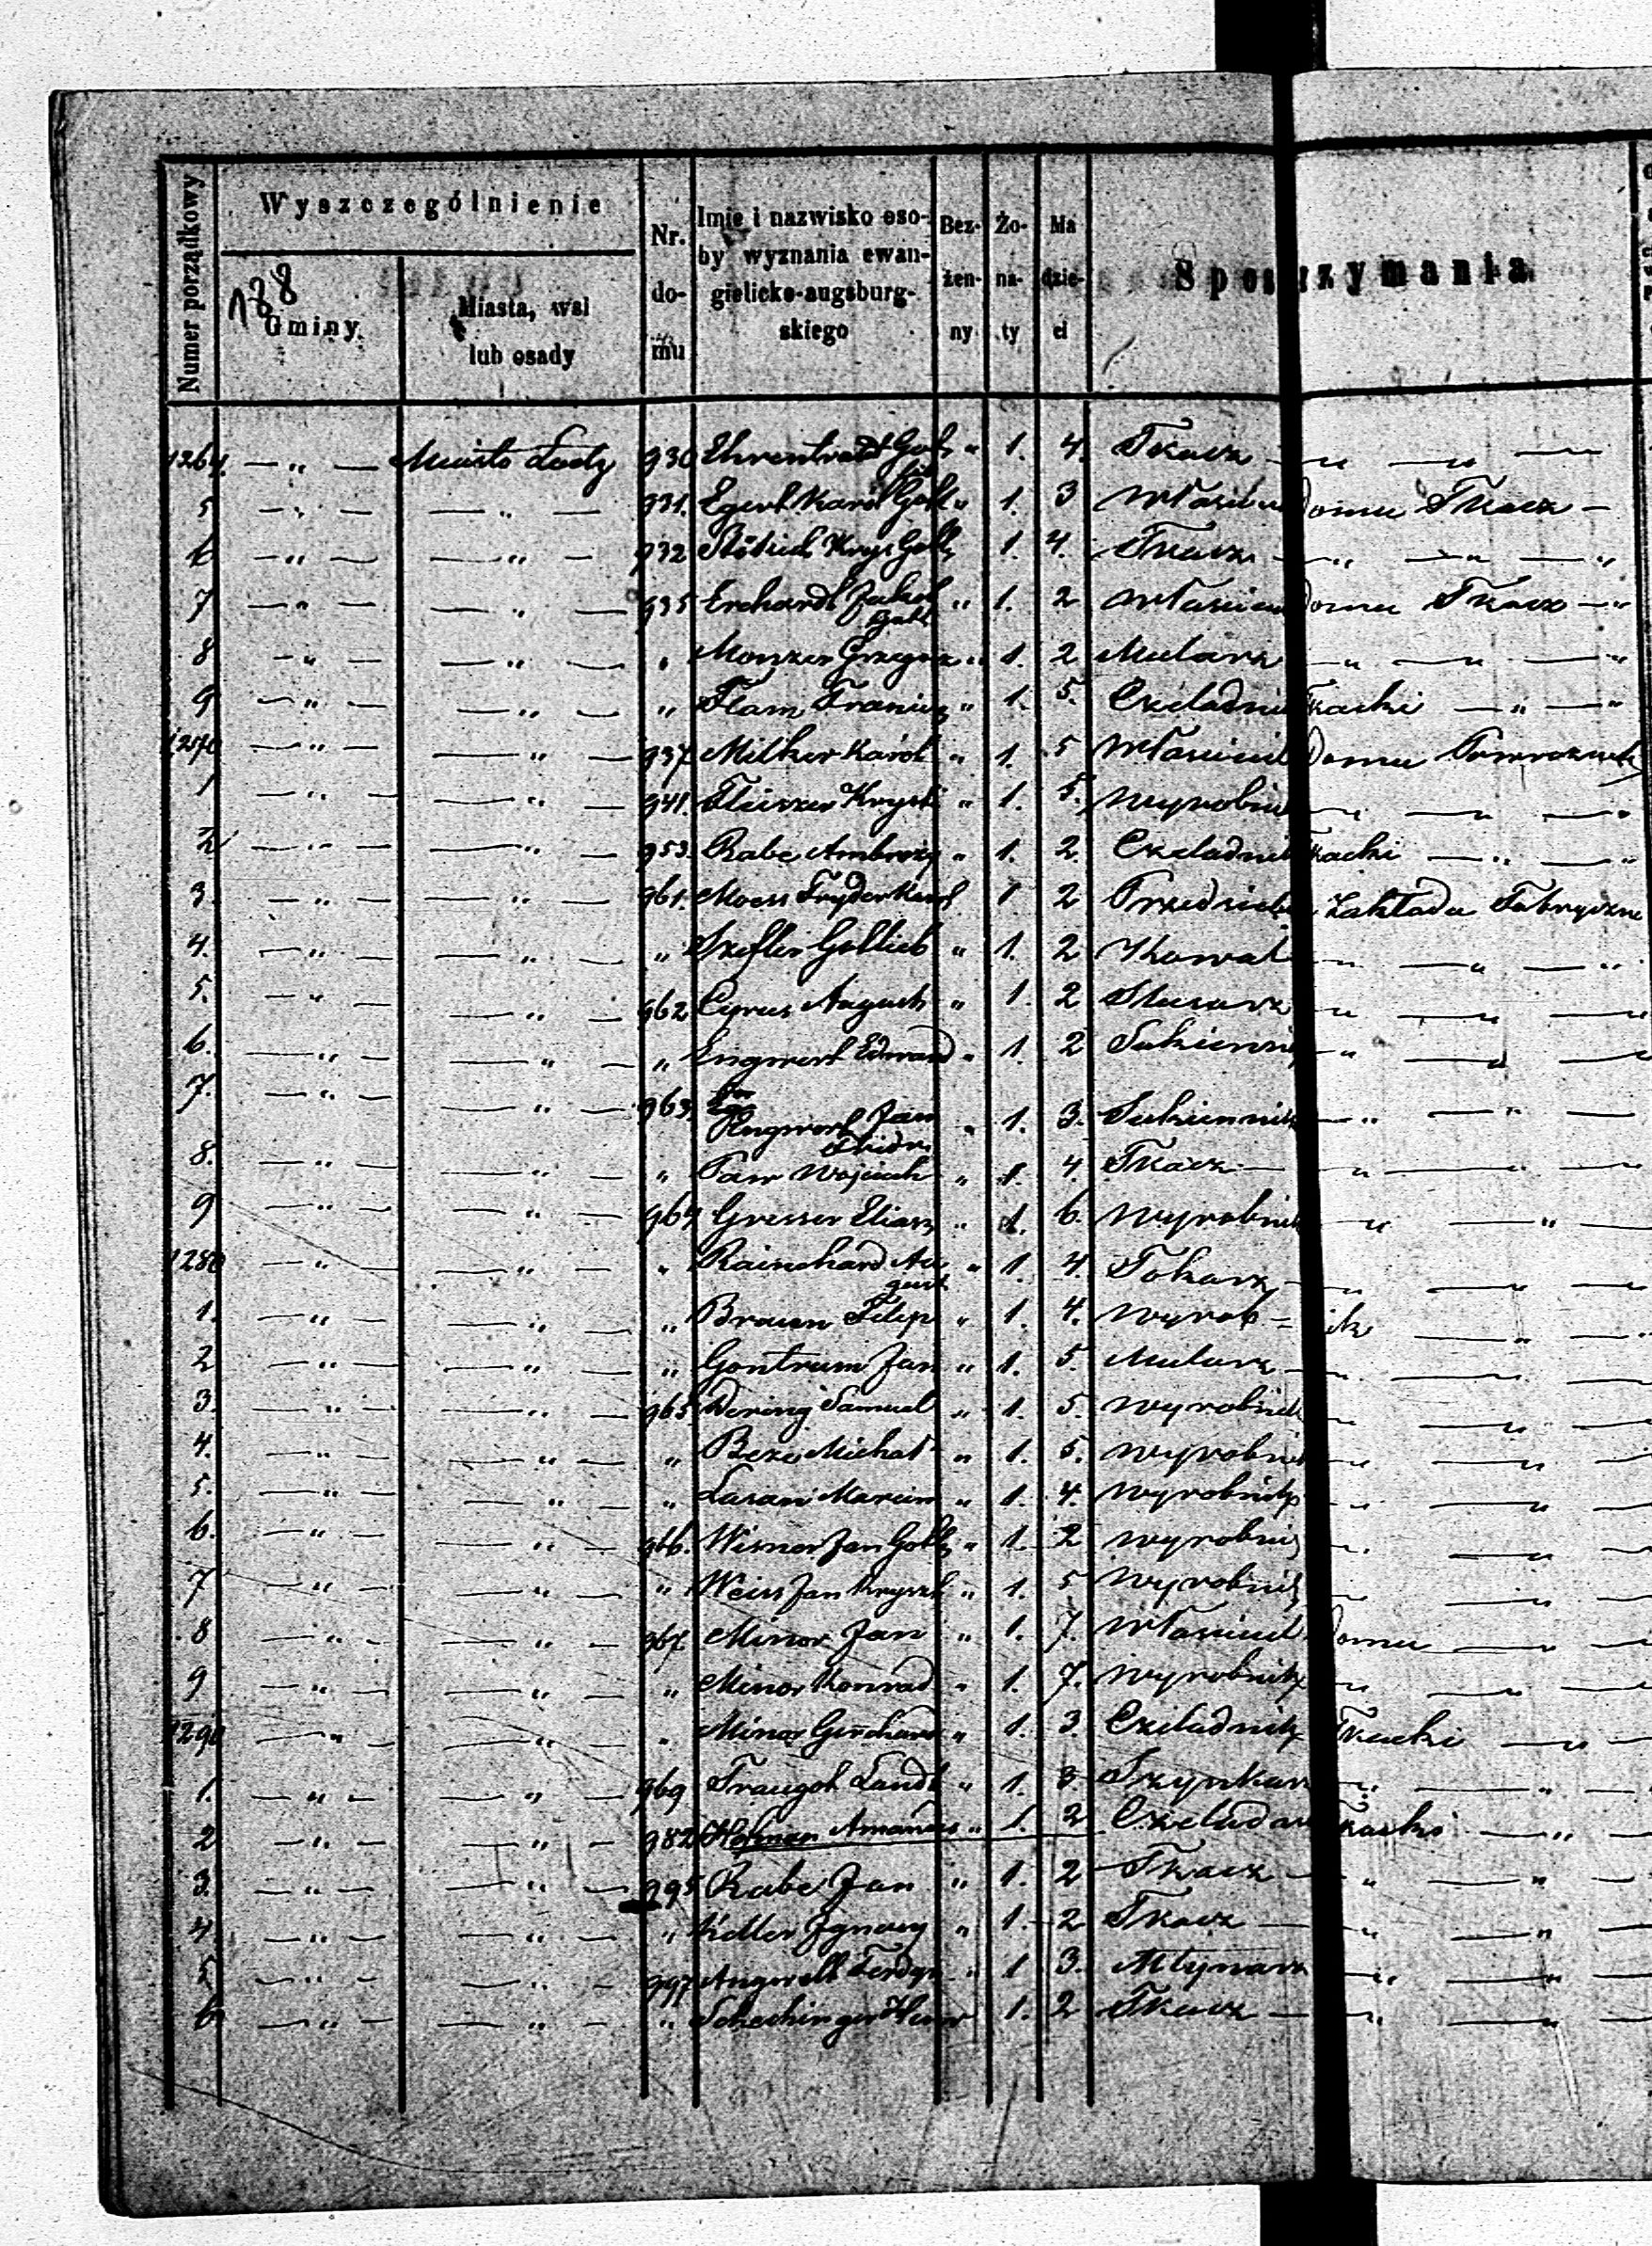 Numer porządkowy
Wyszczególnienie
188
Gminy
Miasta, wsi
lub osady
Nr.
do-
mu
Imię i nazwisko oso-
by wyznania ewan-
gielicko-augsburg-
skiego
Bez-
żen-
ny
Żo-
na-
ty
Ma
dzie-
ci
Spos trzymania
1264. — „ — Miasto Łodz 930 Gotl „ 1. 4. Tkacz — „ — „ —
5 — „ — — „ — 931. Egert Karol Gotl „ 1. 3 Właścici Domu Tkacz —
6 — „ — — „ — 932 Krys Gottl 1. 4. Tkacz — „ — „ — „
7 — „ — — „ — 935 Erchardt Jakob „ 1. 2 Właścici Domu Tkacz — „
Gotl
8 — „ — — „ — „ Monzer Grzegorz „ 1. 2 Mularz — „ — „ — „
9 — „ — — „ — „ Flam Franciz „ 1. 5. Czeladni Tkacki — „ — „
1270 — „ — — „ — 937 Milker Karol „ 1. 5 Właściciel Domu
1 — „ — — „ — 941. Fleiszer Kryst „ 1. 5. Wyrobni — „ — „ — „
2 — „ — — „ — 953. Rabe Ambroży „ 1. 2 Czeladnik Tkacki — „ — „
3. — „ — — „ — 961. Moess Fryder Karol 1 2 Zakładu Fabryczne
4. — „ — — „ — „ Szefler Gottlieb „ 1. 2 Kowal — „ — „ — „
5. — „ — — „ — 962 Cyrus August „ 1. 2 Slusarz — „ — „ —
6. — „ — — „ — „ Engwert Edward „ 1. 2 Sukienni — „ — „ —
7. — „ — — „ — 963. Engwert Jan „ 1. 3. Sukiennik — „ — „ —
Fridr.
8. — „ — — „ — „ Paw Wojciech „ 1. 4. Tkacz — „ — „ —
9 — „ — — „ — 964 Gresser Eliasz „ 1. 6. Wyrobnik — „ — „ —
1280 — „ — — „ — „ Rainchard Au „ 1. 4. Tokarz — „ — „ —
gust
1. — „ — — „ — „ Braun Filip „ 1. 4. Wyrob - nik — „ —
2 — „ — — „ — „ Gontrum Jan „ 1. 5. Mularz — „ — „ —
3. — „ — — „ — 965 Dering Samuel „ 1. 5. Wyrobnik — „ — „ —
4. — „ — — „ — „ Beze Michał „ 1. 5. Wyrobnik — „ — „ —
5. — „ — — „ — „ Marcin „ 1. 4. Wyrobnik — „ — „ —
6. — „ — — „ — 966. Wisner Jan Gottl „ 1. 2 Wyrobni — „ — „ —
7 — „ — — „ — „ Weiss Jan Kryszt „ 1. 5 Wyrobnik — „ — „ —
8 — „ — — „ — 967. Minor Jan „ 1. 7. Właściciel Domu — „ —
9 — „ — — „ — „ Minor Konrad „ 1. 7. Wyrobnik — „ — „ —
1290 — „ — — „ — „ Minor Gerchard „ 1. 3. Czeladnik Tkacki — „ —
1. — „ — — „ — 969 Traugot Landt „ 1. 3 Szynkarz — „ — „ —
2 — „ — — „ — 982 Hofman Amandus „ 1. 2 Czeladni Tkacki — „ —
3. — „ — — „ — 995 Rabe Jan „ 1. 2 Tkacz — „ — „ —
4 — „ — — „ — „ Keller Ignacy „ 1. 2 Tkacz — „ — „ —
5 — „ — — „ — 997 Angwelt Ferdyn „ 1 3. Młynarz — „ — „ —
6 — „ — — „ — „ Schechinger Henr 1. 2 Tkacz — „ — „ —